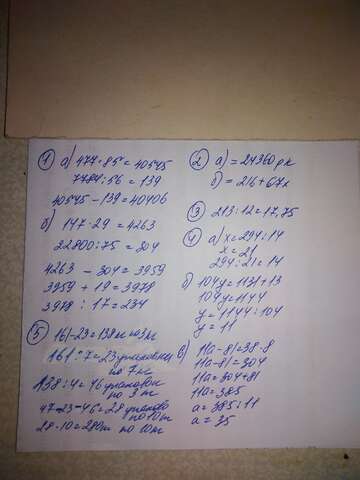 1) а) 477·85=40545
7784:56=139
40545-139=40406
б) 147·29=4263
22800:75=304
4263-304=3959
3959+19=3978
3978:17=234
5) 161-23=138м по 3м
161:7=23 упаковки
по 7м
138:4=46 упаковок
по 3м
47-23-46=28 упаково
по 10м
28·10=280м по 10м
2) а) =24360дк
б) =216+67х
3) 213:12=17,75
4) а) х=294:14
х=21
294:21=14
б) 104у=1131+13
104у=1144
у=1144:104
у=11
в) 11а-81=38·8
11а-81=304
11а=304+81
11а=385
а=385:11
а=35